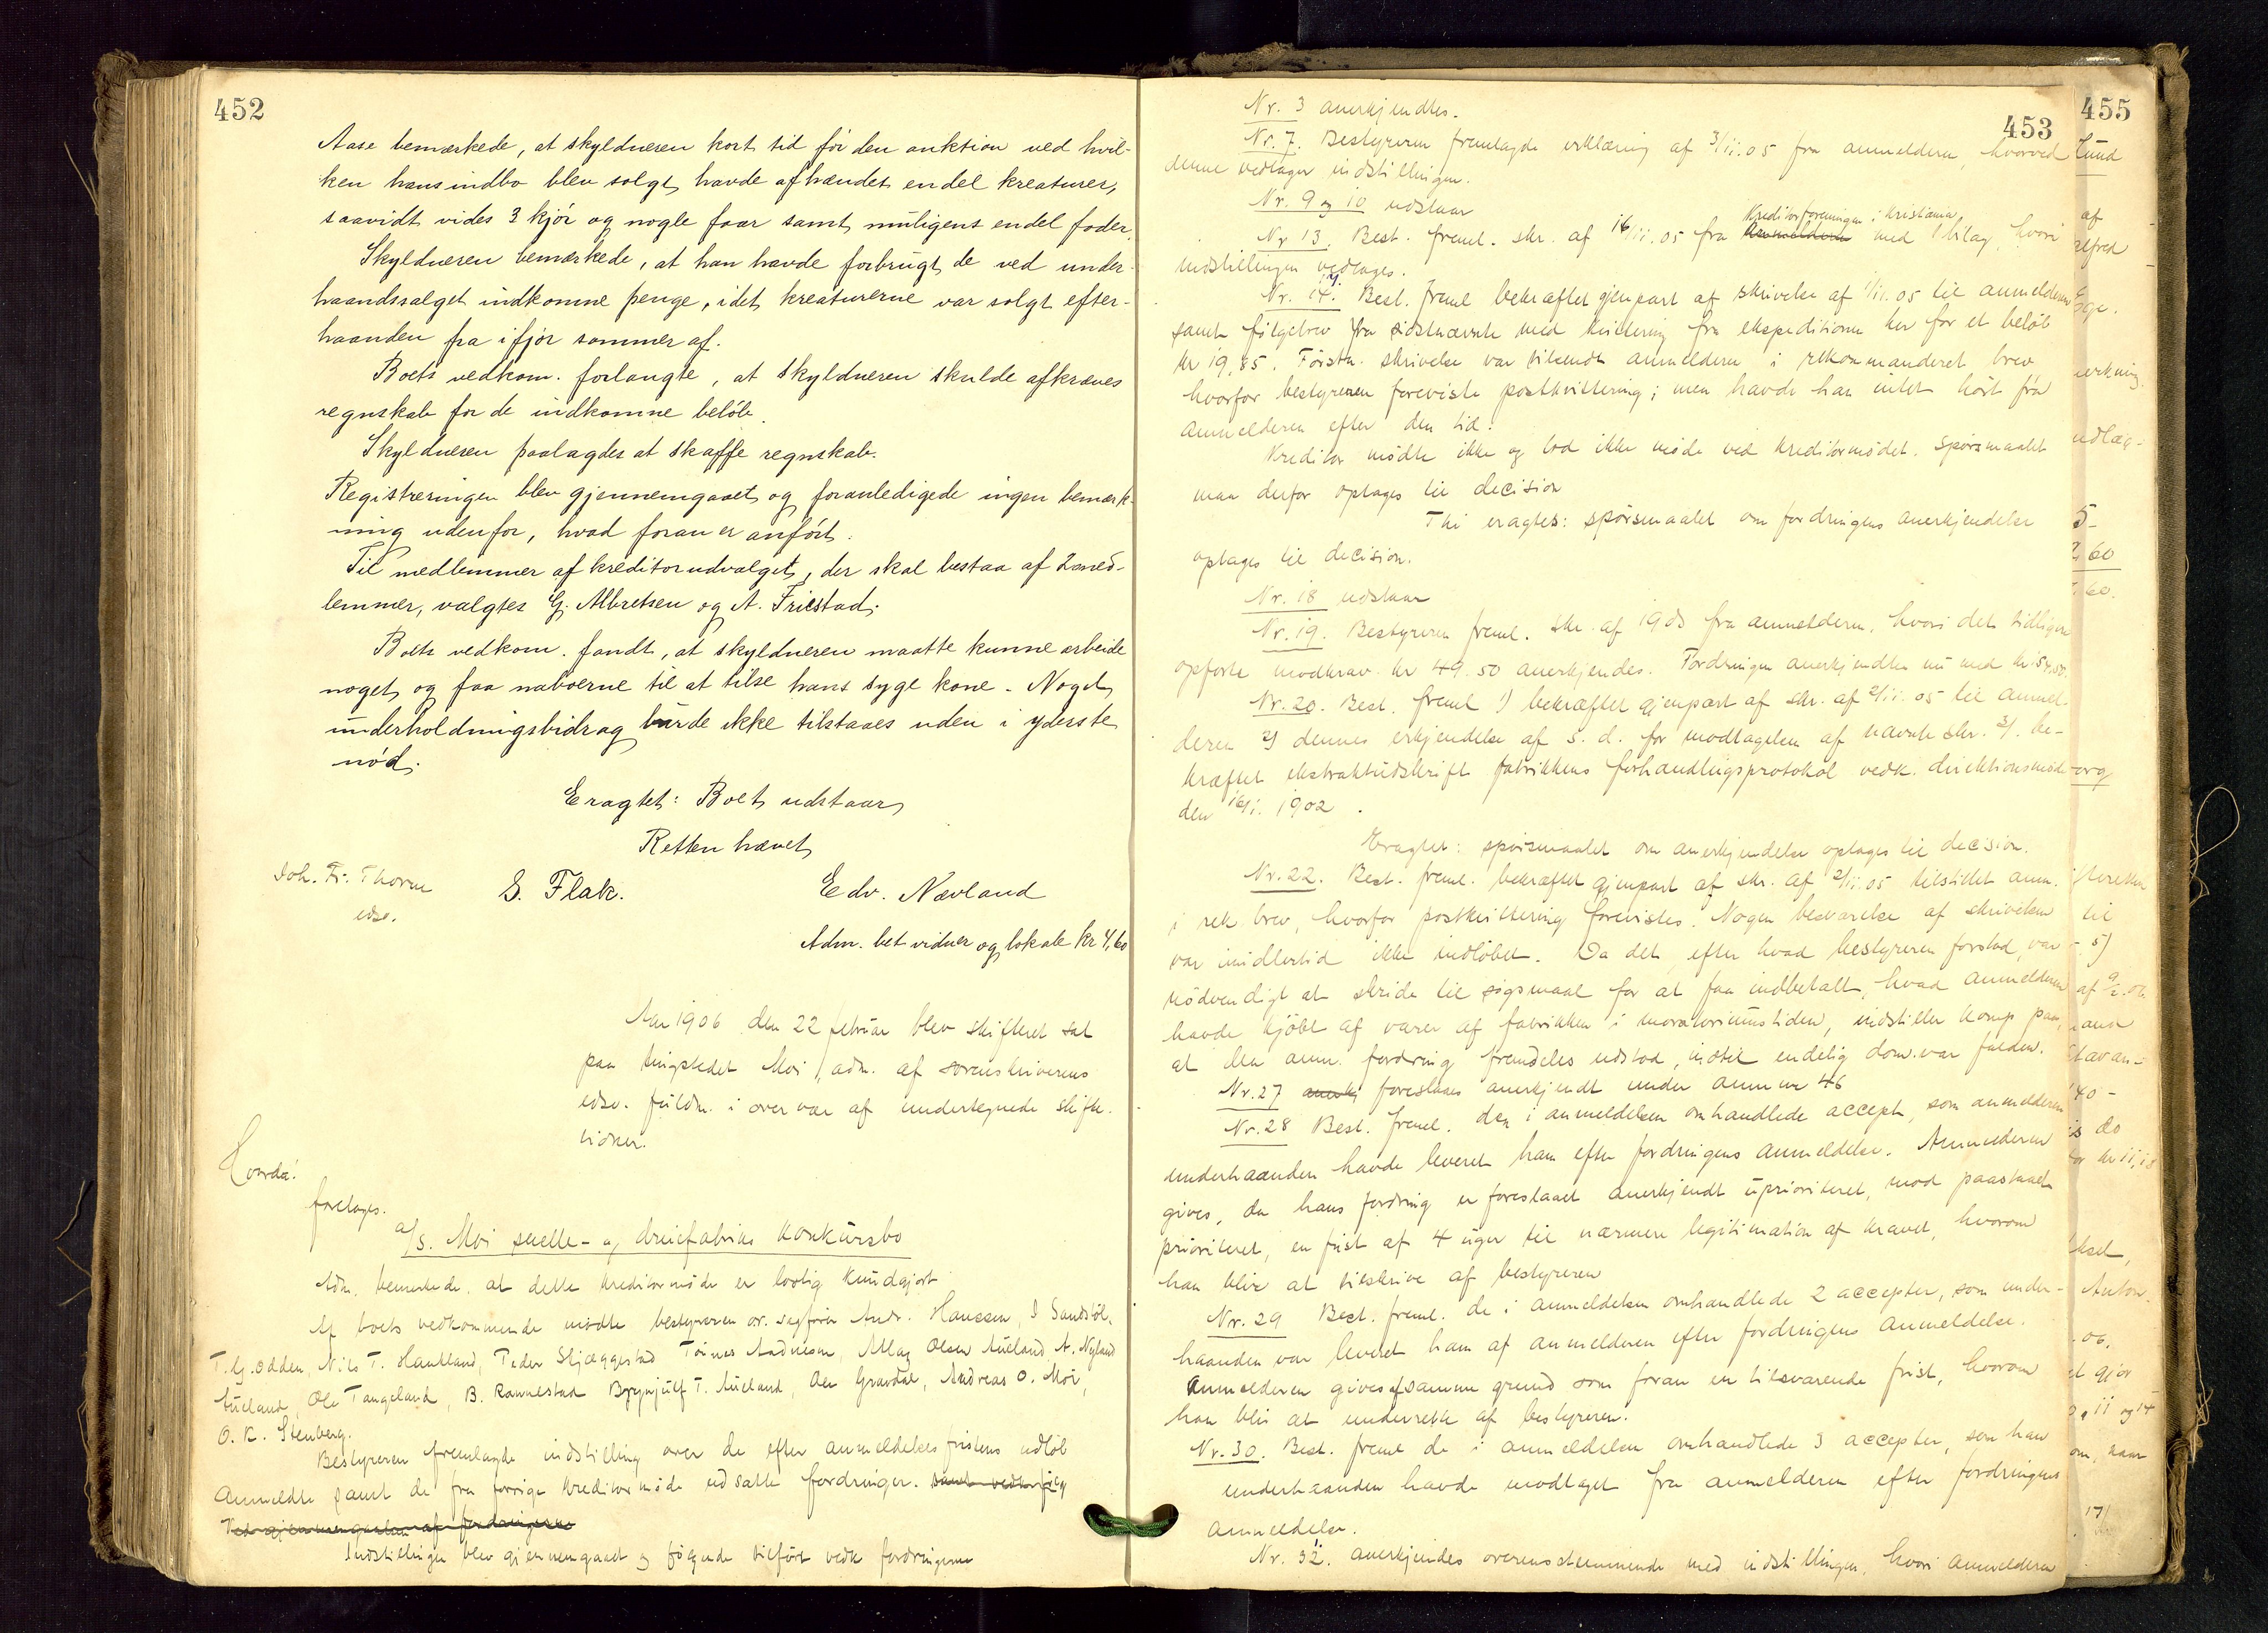 452
Aase bemærkede, at skyldneren kort tid før den auktion ved hvil-
ken hans indbo blev solgt, havde afhændet endel kreaturer,
saavidt vides 3 kjør og nogle faar samt muligens endel foder.
Skyldneren bemærkede, at han havde forbrugt de ved under-
haandssalget indkomne penge, idet kreaturerne var solgt efter-
haanden fra ifjor sommer af.
Boets vedkom. forlangte, at skyldneren skulde afkræves
regnskab for de indkomne beløb.
Skyldneren paalagdes at skaffe regnskab.
Registreringen blev gjennemgaaet og foranledigede ingen bemærk-
ning udenfor, hvad foran er anført.
Til medlemmer af kreditorudvalget, der skal bestaa af 2 med-
lemmer, valgtes G. Albretsen og A. Friestad.
Boets vedkom. fandt, at skyldneren maatte kunne arbeide
noget, og faa naboerne til at tilse hans syge kone. Noget
underholdningsbidrag burde ikke tilstaaes uden i yderste
nød.
Eragtet: Boet udstaar
Retten hævet
Joh. Fr. Thorne
edsv.
S. Flak.
Edv. Nævland
Adm. bet vidner og lokale kr 4,60
Aar 1906 den 22 februar blev skifteret sat
paa tingstedet Moi, adm. af sorenskriverens
edsv. fuldm. i overvær af undertegnede skifte-
vidner.
Hvorda:
foretoges.
a/s. Moi snelle- og dreiefabriks konkursbo
Adm. bemerkede, at dette kreditormøde er lovlig kundgjort
Af boets vedkommende mødte bestyreren or. sagfører Andr. Hanssen, I Sandsløl.
T. G. Odden, Nils T. Haukland, Peder Skjæggestad Tønnes Aadnesen, Atlag Olsen Aueland, A. Nyland
Aueland, Ole Tangeland, B. Ramnestad Brynjulf T. Aueland, Ole Gravdal, Andreas O. Moi,
O. K. Stenberg.
Bestyreren fremlagde indstilling over de efter anmeldelsesfristens udløb
anmeldte samt de fra forrige kreditormøde udsatte fordringer.
Ved gjennemgaaelsen af fordringerne
Indstillingen blev gjennemgaaet og følgende tilført vedk fordringerne
453
Nr. 3 anerkjendtes.
Nr. 7. Bestyreren fremlagde erklæring af 3/11.05 fra anmelderen, hvorved
denne vedtager indstillingen.
Nr. 9 og 10 udstaar
Kreditorforeningen i Kristiania
Nr 13. Best. freml. skr. af 16/11.05 fra Anmelderen med 1 bilag, hvori
indstillingen vedtages.
Nr. 14. Best. freml bekræftet gjenpart af skrivelse af 1/11.05 til anmelderen
samt følgebrev fra sidstnævnte med kvittering fra ekspeditionen her for et beløb
kr 19,85. Førstn. skrivelse var tilsendt anmelderen i rekommanderet brev
hvorfor bestyreren foreviste postkvittering; men havde han intet hørt fra
anmelderen efter den tid.
Kreditor mødte ikke og lod ikke møde ved kreditormødet. Spørsmaalet
maa derfor optages til decision
Thi eragtes: spørsmaalet om fordringens anerkjendelse
optages til decision.
Nr. 18 udstaar
Nr. 19. Bestyreren freml. skr. af 1905 fra anmelderen, hvori det tidligere
opførte modkrav kr 49.50 anerkjendes. Fordringen anerkjendtes nu med kr 54,50.
Nr. 20. Best. freml 1) bekræftet gjenpart af skr. af 2/11.05 til anmel-
deren 2) dennes erkjendelse af s. d. for modtagelsen af nævnte skr. 3). be-
kræftet ekstraktudskrift fabrikkens forhandlingsprotokol vedk. direktionsmøde
den 16/1. 1902.
Eragtet: spørsmaalet om anerkjendelse optages til decision.
Nr. 22. Best. freml. bekræftet gjenpart af skr. af 2/11.05 tilstillet anm.
i rek. brev, hvorfor postkvittering forevistes. Nogen besvarelse af skrivelsen
var imidlertid ikke indløbet. Da det, efter hvad bestyreren forstod, var
nødvendigt at skride til søgsmaal for at faa indbetalt, hvad anmelderen
havde kjøbt af varer af fabrikken i moratoriumstiden, indstiller komp paa,
at den anm. fordring fremdeles udstod, indtil endelig dom var falden.
Nr. 27 anerkj foreslaaes anerkjendt under anm nr 46
Nr. 28 Best. freml. den i anmeldelsen omhandlede accept, som anmelderen
underhaanden havde leveret ham efter fordringens anmeldelse. Anmelderen
gives, da hans fordring er foreslaaet anerkjendt uprioriteret, mod paastaaet
prioriteret, en frist af 4 uger til nærmere legitimation af kravet, hvorom
han blir at tilskrive af bestyreren
Nr. 29 Best. freml. de i anmeldelsen omhandlede 2 accepter, som under-
haanden var leveret ham af anmelderen efter fordringens anmeldelse.
Anmelderen gives af samme grund som foran en tilsvarende frist, hvorom
han blir at underrette af bestyreren.
Nr. 30. Best. freml de i anmeldelsen omhandlede 3 accepter, som han
underhaanden havde modtaget fra anmelderen efter fordringens
anmeldelse.
Nr. 32. anerkjendes overensstemmende med indstillingen, hvori anmelderen
455
Lund
af
alfred
erkning.
udlæg-
5-
60
60.
org
til
5)
40-
do
Anton.
et gjør
11 og 14
om, naar